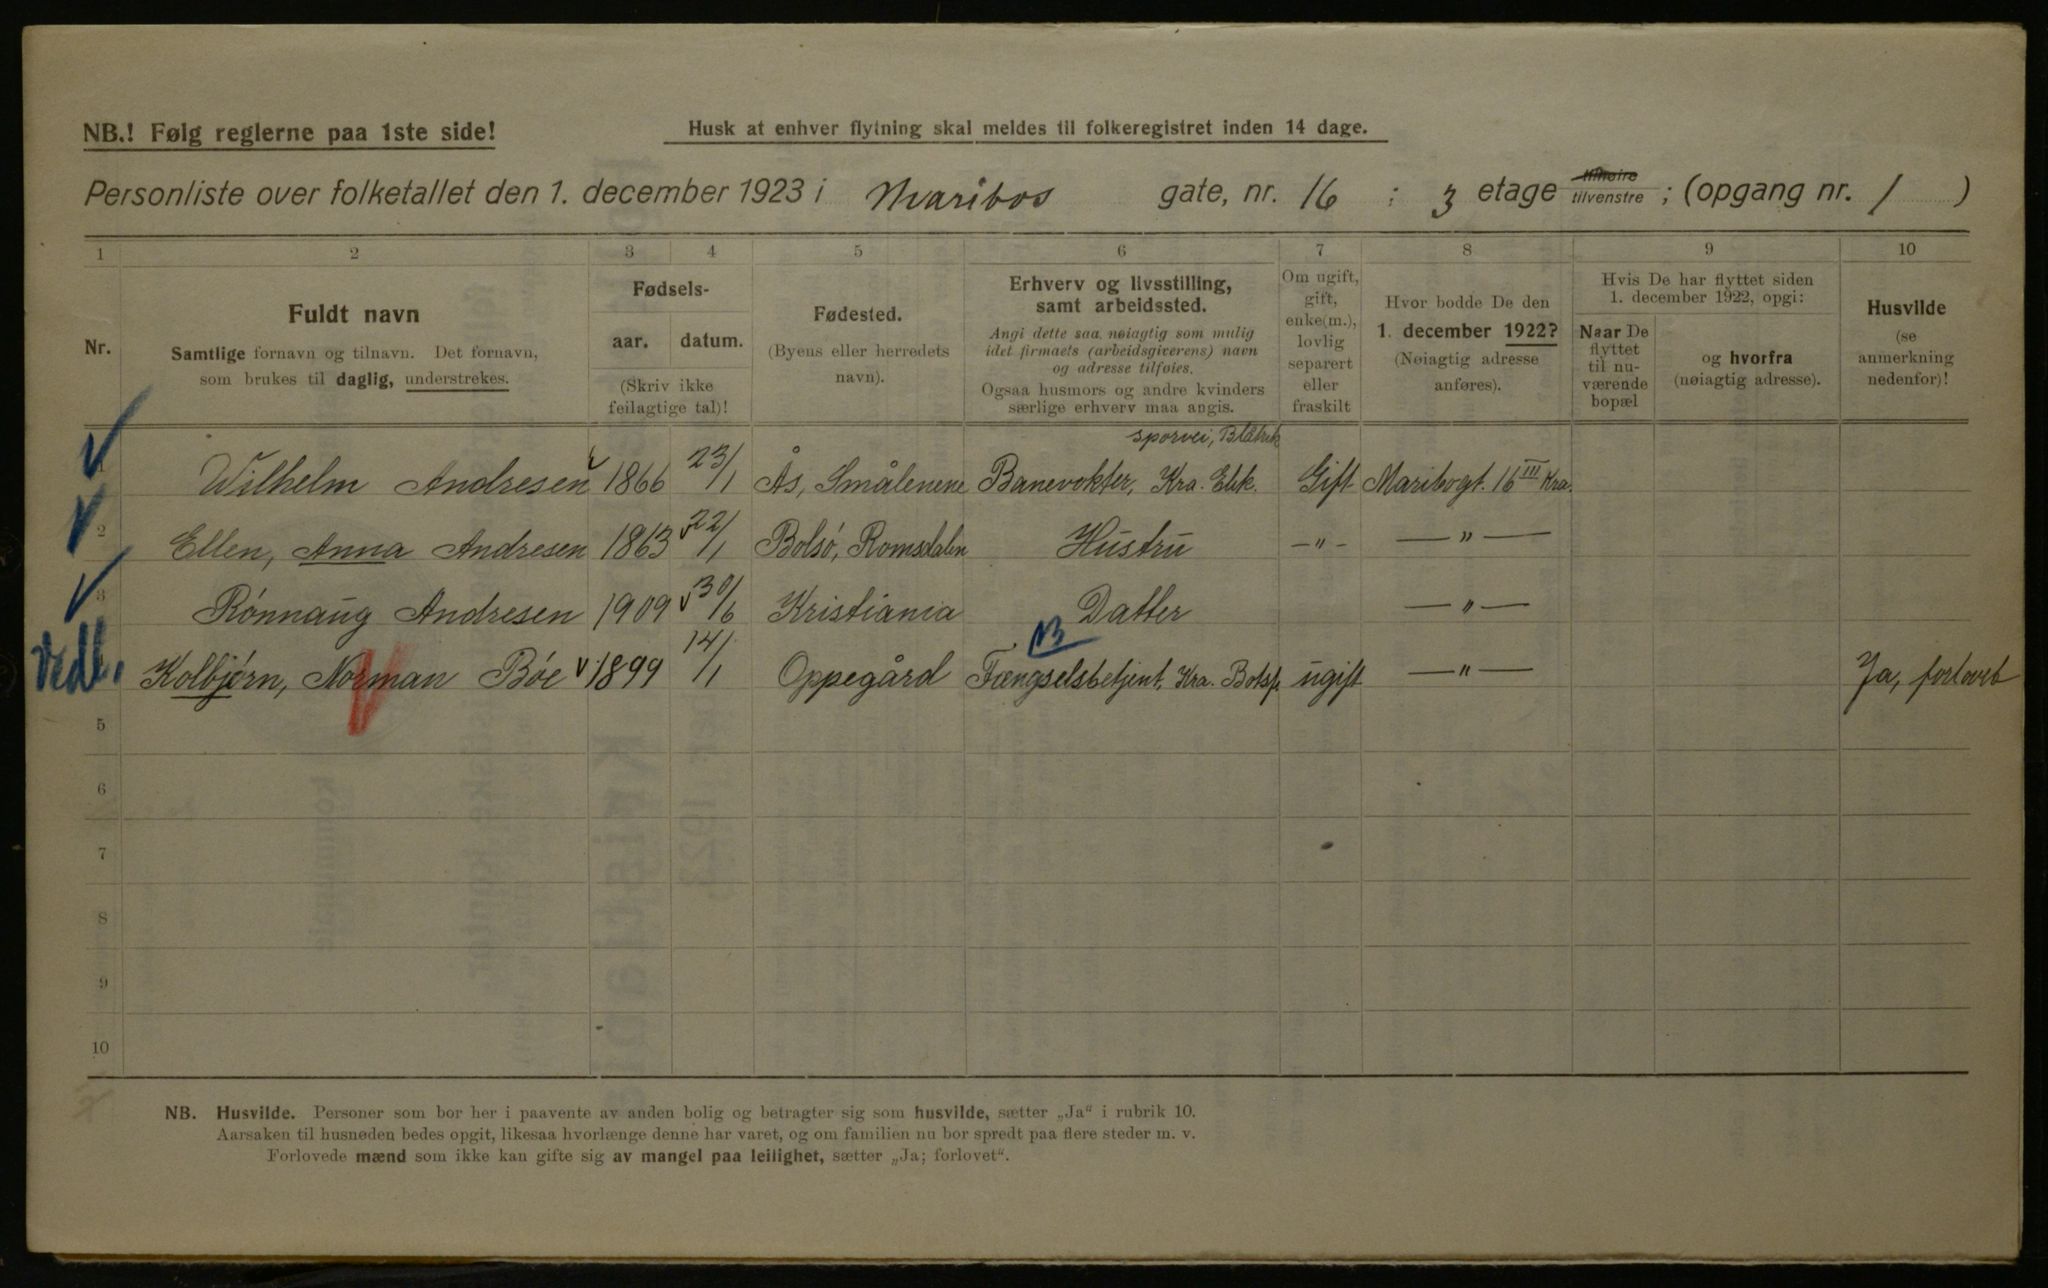 NB.! Følg reglerne paa 1ste side!
Husk at enhver flytning skal meldes til folkeregistret inden 14 dage.
Personliste over folketallet den 1. december 1923 i Maribos gate, nr. 16 : 3 etage tilhøire tilvenstre ; (opgang nr. 1 )
1 2 3 4 5 6 7 8 9 10
Nr.
Fuldt navn
Samtlige fornavn og tilnavn. Det fornavn,
som brukes til daglig, understrekes.
Fødsels-
aar. datum.
(Skriv ikke
feilagtige tal)!
Fødested.
(Byens eller herredets
navn).
Erhverv og livsstilling,
samt arbeidssted.
Angi dette saa nøiagtig som mulig
idet firmaets (arbeidsgiverens) navn
og adresse tilføies.
Ogsaa husmors og andre kvinders
særlige erhverv maa angis.
Om ugift,
gift,
enke(m.),
lovlig
separert
eller
fraskilt
Hvor bodde De den
1. december 1922?
(Nøiagtig adresse
anføres).
Hvis De har flyttet siden
1. december 1922, opgi:
Naar De
flyttet
til nu-
værende
bopæl
og hvorfra
(nøiagtig adresse).
Husvilde
(se
anmerkning
nedenfor)!
sporvei,
1 Wilhelm Andresen 1866 23/1 Ås, Smålenene Banevokter, Kra. Elek. Gift Maribogt. 16 III Kra.
2 Ellen, Anna Andresen 1863 22/1 Bolsö, Romsdalen Hustru -„- —„—
3 Rönnaug Andresen 1909 30/6 Kristiania Datter —„—
NB
Vedl. Kolbjørn, Norman Bøe 1899 14/1 Oppegård Fængselsbetjent, Kra. Botsf. ugift —„— Ja, forlovet
5
6
7
8
9
10
NB. Husvilde. Personer som bor her i paavente av anden bolig og betragter sig som husvilde, sætter „Ja" i rubrik 10.
Aarsaken til husnøden bedes opgit, likesaa hvorlænge denne har varet, og om familien nu bor spredt paa flere steder m. v.
Forlovede mænd som ikke kan gifte sig av mangel paa leilighet, sætter „Ja; forlovet".